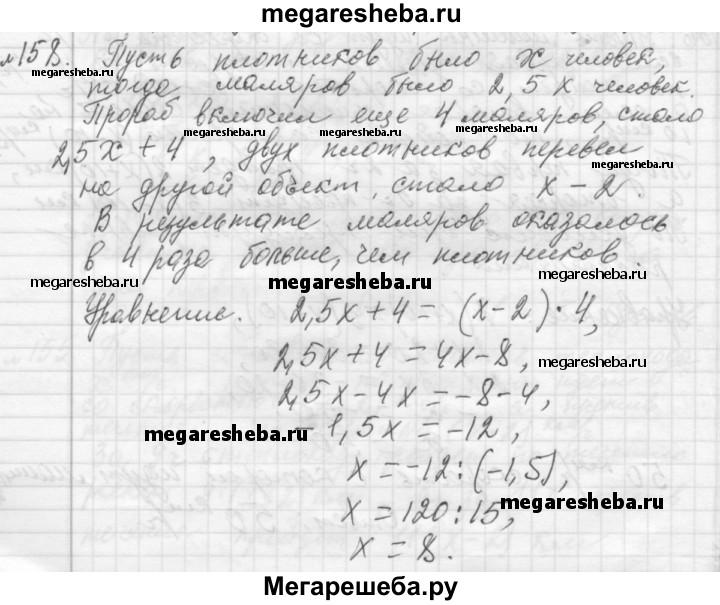 megaresheba.ru
№158. Пусть плотников было х человек,
megaresheba.ru
тогда маляров было 2,5х человек.
Прораб включил еще 4 маляров, стало
megaresheba.ru megaresheba.ru megaresheba.ru megaresheba.ru
2,5х + 4, двух плотников перевел
на другой объект, стало х – 2.
В результате маляров оказалось
в 4 раза больше, чем плотников.
megaresheba.ru megaresheba.ru megaresheba.ru
Уравнение. 2,5х + 4 = (х – 2) · 4,
2,5х + 4 = 4х – 8,
megaresheba.ru
2,5х – 4х = –8 – 4,
– 1,5х = –12,
megaresheba.ru
х = –12 : (–1,5),
megaresheba.ru
х = 120 : 15,
х = 8.
Мегарешеба.ру